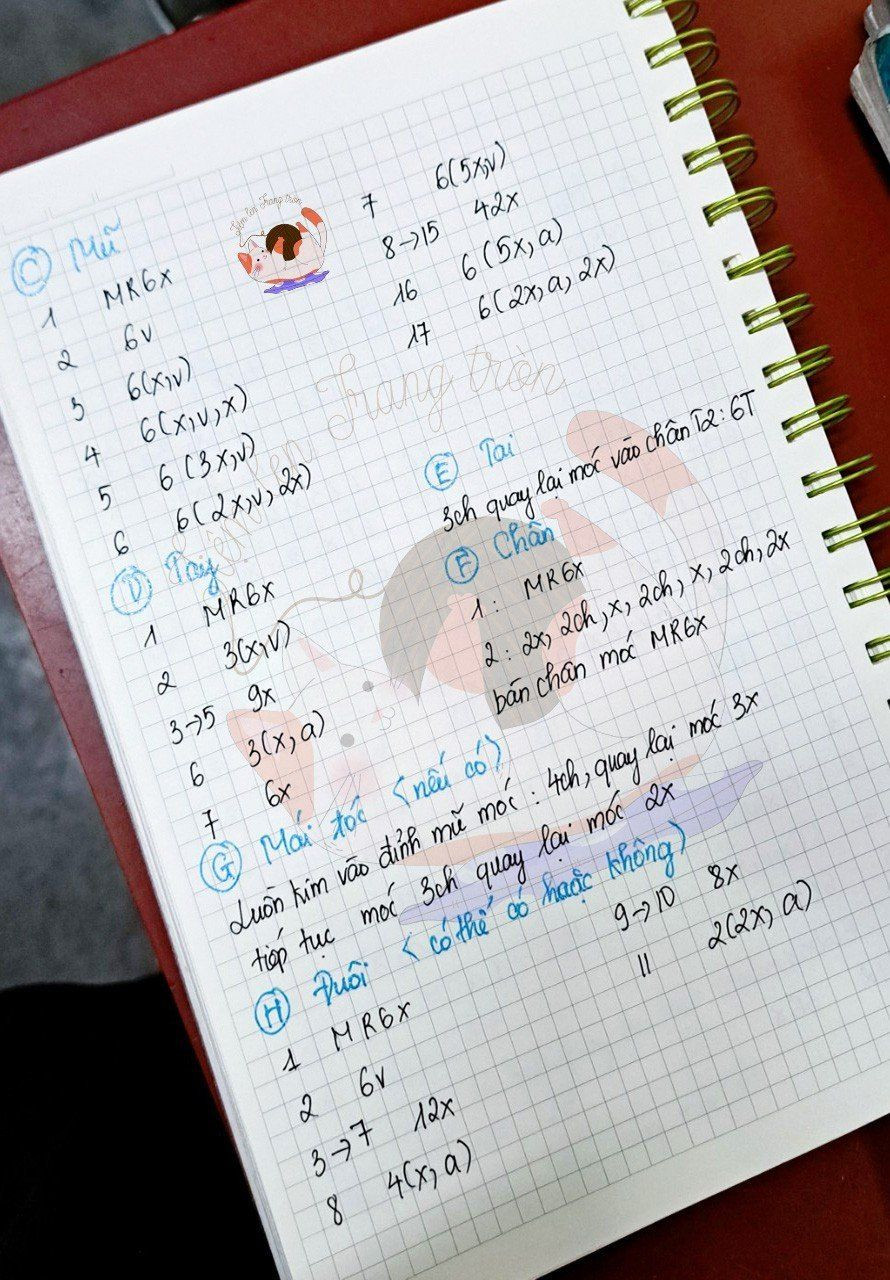 Tiệm len Trang tròn
Tiệm len Trang tròn
C Mũ
1 MR6x
2 6v
3 6(x,v)
4 6(x,v,x)
5 6(3x,v)
6 6(2x,v,2x)
7 6(5x,v)
8→15 42x
16 6(5x,a)
17 6(2x,a,2x)
D Tay
1 MR6x
2 3(x,v)
3→5 9x
6 3(x,a)
7 6x
E Tai
3ch quay lại móc vào chân T2: 6T
F Chân
1: MR6x
2: 2x, 2ch, x, 2ch, x, 2ch, 2x
bàn chân móc MR6x
G Mái tóc (nếu có)
Luồn kim vào đỉnh mũ móc: 4ch, quay lại móc 3x
tiếp tục móc 3ch quay lại móc 2x
H Đuôi (có thể có hoặc không)
1 MR6x
2 6v
3→7 12x
8 4(x,a)
9→10 8x
11 2(2x,a)